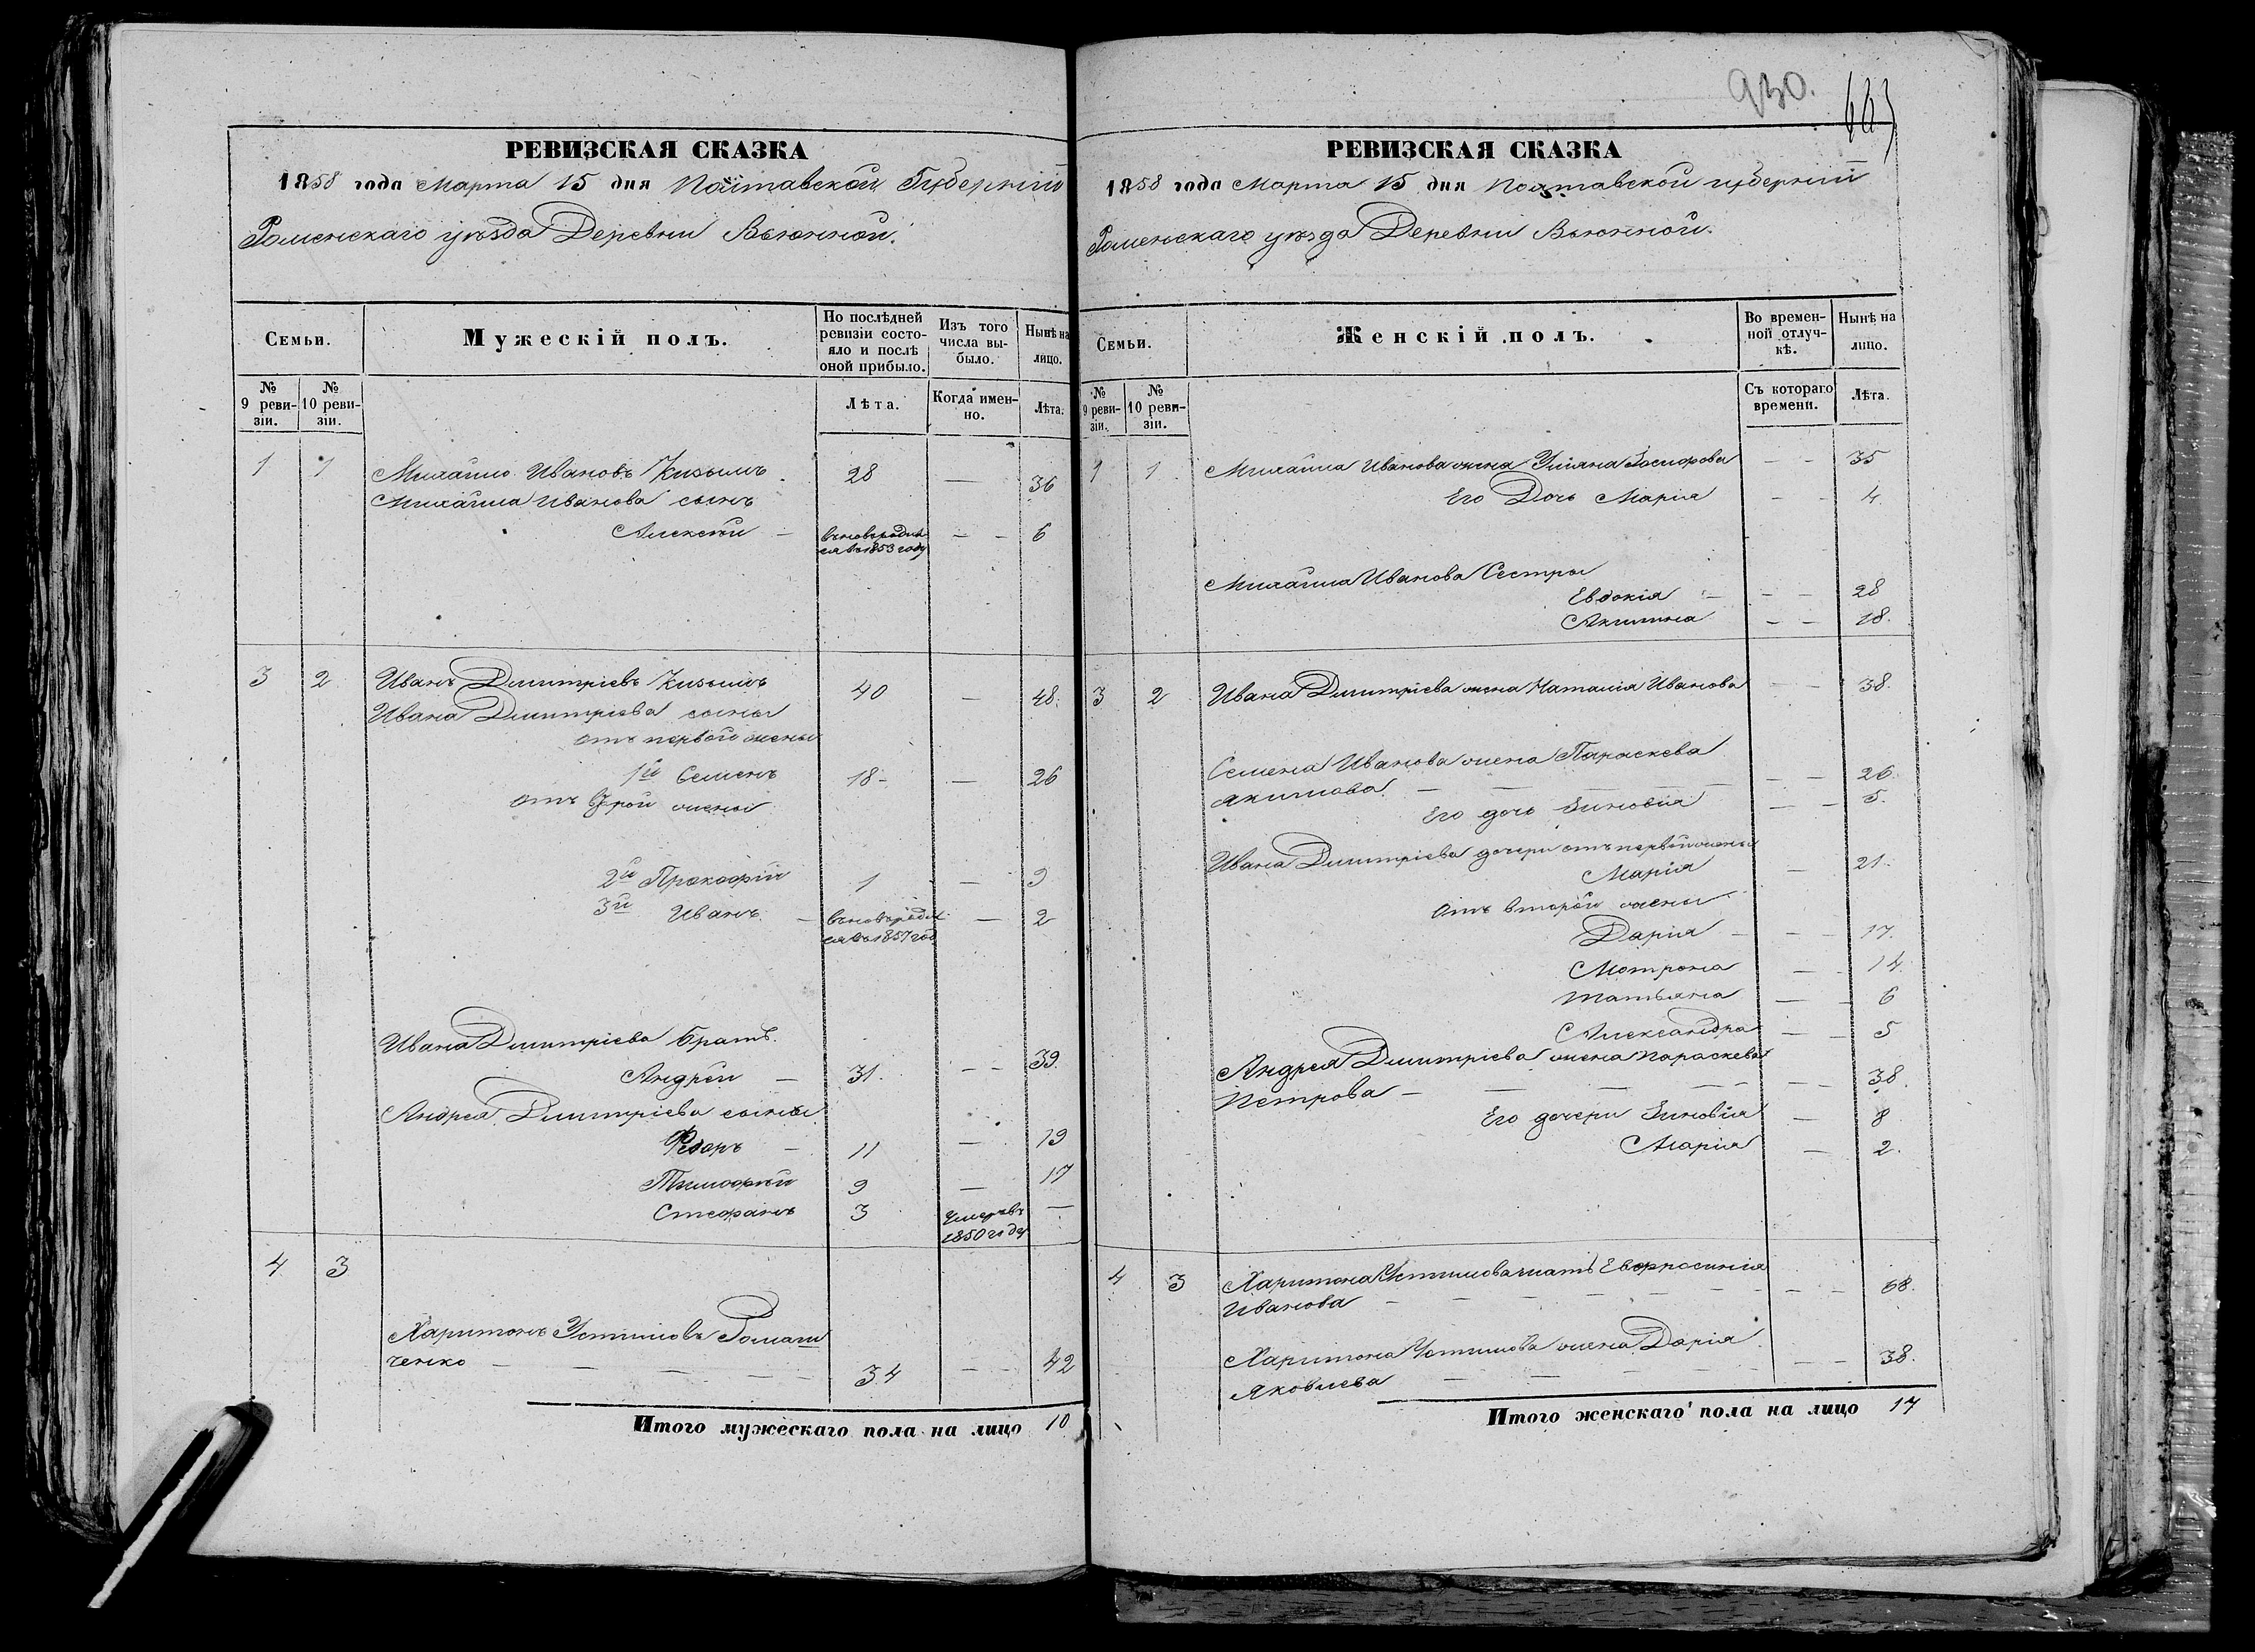 РЕВИЗСКАЯ СКАЗКА
1858 года Марта 15 дня Полтавской Губерніи
Роменскаго уѣзда Деревни Вьюнной.
Семьи.
Мужескій полъ.
По послѣдней ревизіи состояло и послѣ оной прибыло.
Изъ того числа выбыло.
Нынѣ на лицо.
№ 9 ревизіи.
№ 10 ревизіи.
Лѣта.
Когда именно.
Лѣта.
1 1 Михайло Ивановъ Кизымъ 28 — 36
Михайла Иванова сынъ
Алексѣй — вновь родил
ся въ 1853 году — — 6
3 2 Иванъ Димитріевъ Кизымъ 40 — 48.
Ивана Димитріева сыны
отъ первой жены
1й Семенъ 18 — 26
отъ втрой жены
2й Прокофій 1 — 9
3й Иванъ — вновь родил
ся въ 1857 год — 2
Ивана Димитріева братъ.
Андрей — 31. — — 39.
Андрея Димитріева сыны
Федоръ — 11 — 19
Тимофѣй 9 — 17
Стефанъ 3 Умеръ въ
1850 году —
4 3
Харитонъ Устимовъ Романченко — — — — 34 — — 42
Итого мужескаго пола на лицо 10
930.
РЕВИЗСКАЯ СКАЗКА
1858 года Марта 15 дня Полтавской губерніи
Роменскаго уѣзда Деревни Вьюнной.
Семьи.
Женскій полъ.
Во временной отлучкѣ.
Нынѣ на лицо.
№ 9 ревизіи.
№ 10 ревизіи.
Съ котораго времени.
Лѣта.
1 1 Михайла Иванова жена Уліяна — — 35
Его Дочь Марія — — 4.
Михайла Иванова Сестры
Евдокія — — — 28
Акилина — — 18.
3 2 Ивана Димитріева жена Наталія Иванова — — 38.
Семена Иванова жена Параскева
Якимова. — — — — — — 26.
Его дочь Зиновія — — 5.
Ивана Димитріева дочери отъ первой жены
Марія — 21.
Отъ второй жены
Дарія — — — 17.
Мотрона — — 14.
Татьяна — — 6
Александра — — 5
Андрея Димитріева жена Параскева
Петрова — — — — — — 38.
Его дочери Зиновія — 8
Марія — 2.
4 3 Харитона Устимова мать Евфросинія
Иванова — — — — — — — 68.
Харитона Устимова жена Дарія
Яковлева — — — — — 38.
Итого женскаго пола на лицо 17